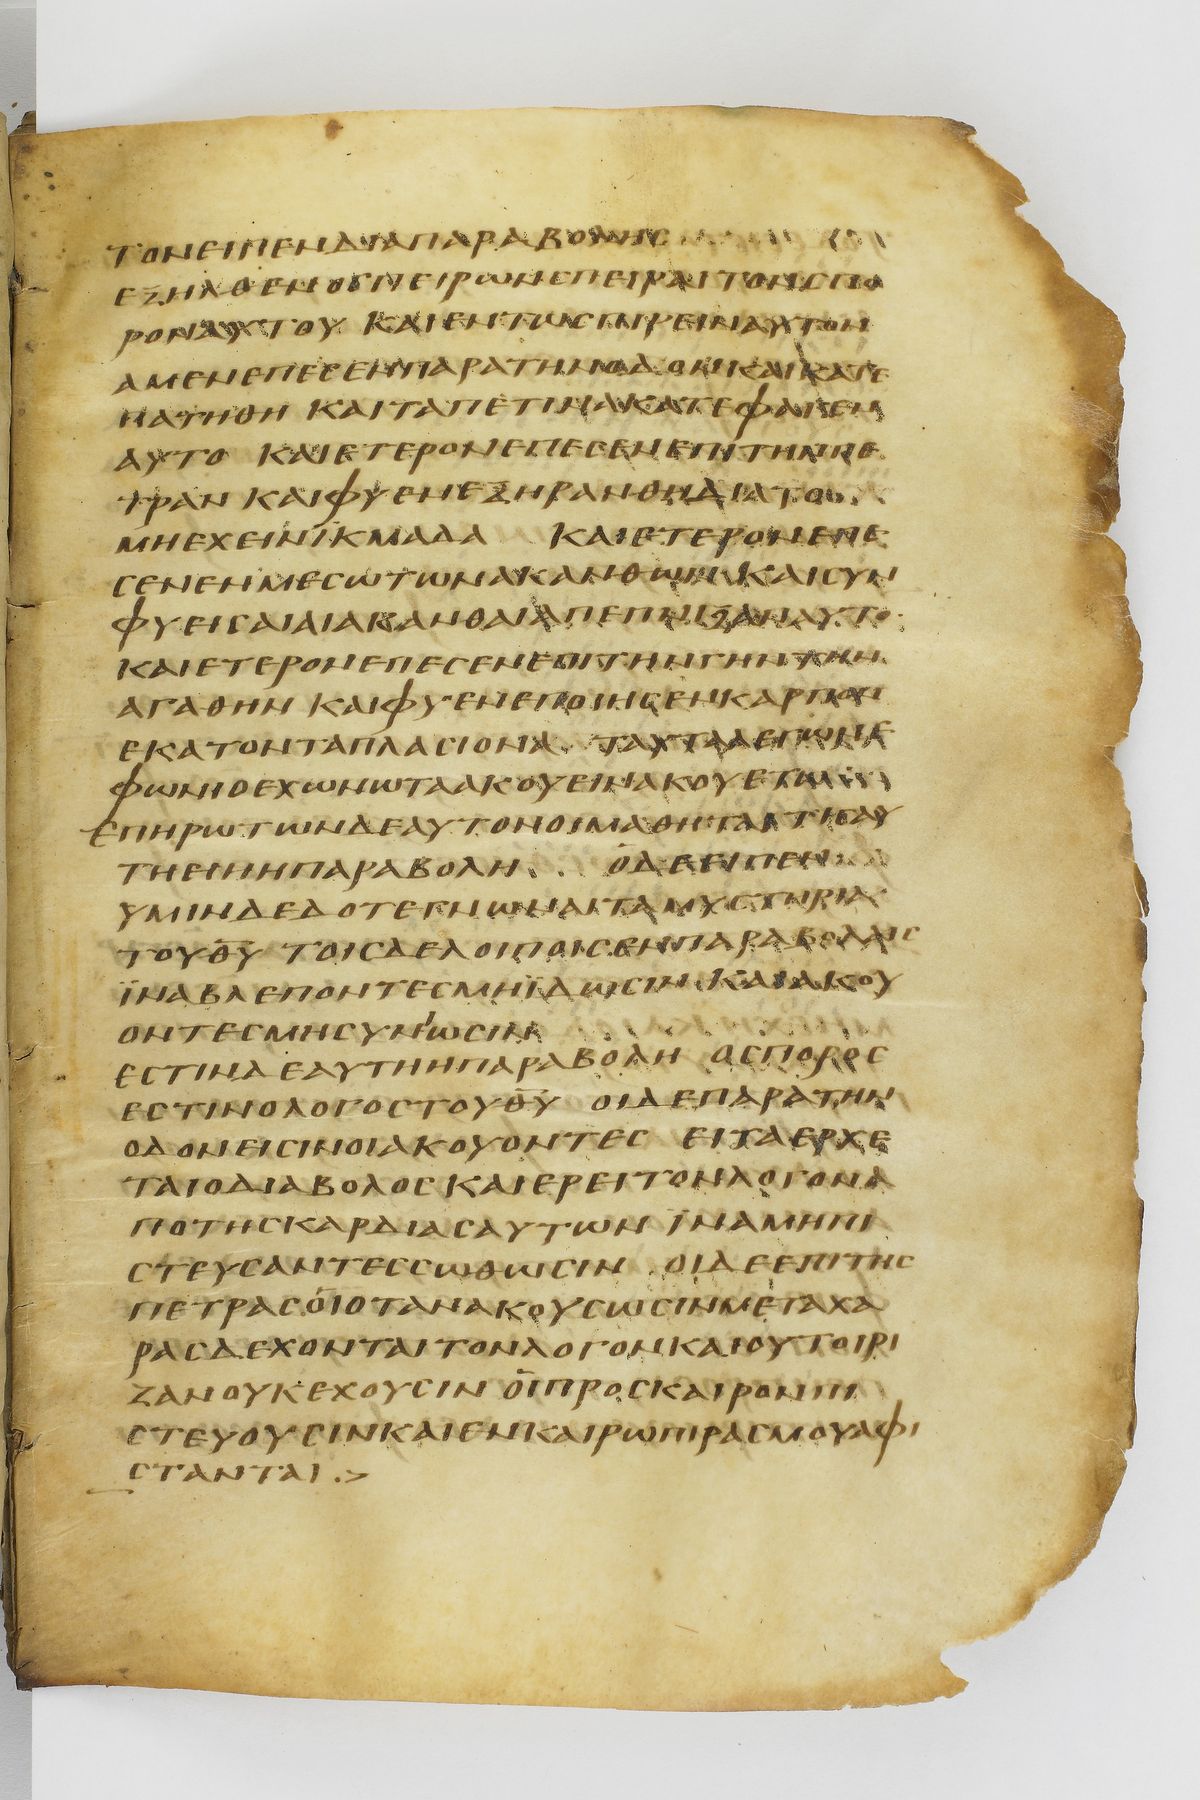 ΤΟΝΕΙΠΕΝΔΙΑΠΑΡΑΒΟΛΗC
ΕΞΗΛΘΕΝΟCΠΕΙΡΩΝCΠΕΙΡΑΙΤΟΝCΠΟ
ΡΟΝΑΥΤΟΥ ΚΑΙΕΝΤΩCΠΙΡΕΙΝΑΥΤΟΝ
ΑΜΕΝΕΠΕCΕΝΠΑΡΑΤΗΝΟΔΟΝΚΑΙΚΑΤΕ
ΠΑΤΗΘΗ ΚΑΙΤΑΠΕΤΙΝΑΚΑΤΕΦΑΓΕΝ
ΑΥΤΟ ΚΑΙΕΤΕΡΟΝΕΠΕCΕΝΕΠΙΤΗΝΠΕ
ΤΡΑΝ ΚΑΙΦΥΕΝΕΞΗΡΑΝΘΗΔΙΑΤΟ
ΜΗΕΧΕΙΝΪΚΜΑΔΑ ΚΑΙΕΤΕΡΟΝΕΠΕ
CΕΝΕΝΜΕCΩΤΩΝΑΚΑΝΘΩΝ ΚΑΙCΥΝ
ΦΥΕΙCΑΙΑΙΑΚΑΝΘΑΙΑΠΕΠΝΙΞΑΝΑΥΤΟ
ΚΑΙΕΤΕΡΟΝΕΠΕCΕΝΕΠΙΤΗΝΓΗΝΤΗΝ
ΑΓΑΘΗΝ ΚΑΙΦΥΕΝΕΠΟΙΗCΕΝΚΑΡΠΟΝ
ΕΚΑΤΟΝΤΑΠΛΑCΙΟΝΑ ΤΑΥΤΑΛΕΓΩΝΕ
ΦΩΝΙΟΕΧΩΝΩΤΑΑΚΟΥΕΙΝΑΚΟΥΕΤΩ
ΕΠΗΡΩΤΩΝΔΕΑΥΤΟΝΟΙΜΑΘΗΤΑΙΤΙCΑΥ
ΤΗΕΙΗΗΠΑΡΑΒΟΛΗ ΟΔΕΕΙΠΕΝ
ΥΜΙΝΔΕΔΟΤΕΓΝΩΝΑΙΤΑΜΥCΤΗΡΙΑ
ΤΟΥΘΥ ΤΟΙCΔΕΛΟΙΠΟΙCΕΝΠΑΡΑΒΟΛΑΙC
ΪΝΑΒΛΕΠΟΝΤΕCΜΗΪΔΩCΙΝ ΚΑΙΑΚΟΥ
ΟΝΤΕCΜΗCΥΝΩCΙΝ
ΕCΤΙΝΔΕΑΥΤΗΗΠΑΡΑΒΟΛΗ ΟCΠΟΡΟC
ΕCΤΙΝΟΛΟΓΟCΤΟΥΘΥ ΟΙΔΕΠΑΡΑΤΗΝ
ΟΔΟΝΕΙCΙΝΟΙΑΚΟΥΟΝΤΕC ΕΙΤΑΕΡΧΕ
ΤΑΙΟΔΙΑΒΟΛΟC ΚΑΙΕΡΕΙΤΟΝΛΟΓΟΝΑ
ΠΟΤΗCΚΑΡΔΙΑCΑΥΤΩΝ ΪΝΑΜΗΠΙ
CΤΕΥCΑΝΤΕCCΩΘΩCΙΝ ΟΙΔΕΕΠΙΤΗC
ΠΕΤΡΑCΟΙΟΤΑΝΑΚΟΥCΩCΙΝΜΕΤΑΧΑ
ΡΑCΔΕΧΟΝΤΑΙΤΟΝΛΟΓΟΝΚΑΙΟΥΤΟΙΡΙ
ΖΑΝΟΥΚΕΧΟΥCΙΝ ΟΙΠΡΟCΚΑΙΡΟΝΠΙ
CΤΕΥΟΥCΙΝΚΑΙΕΝΚΑΙΡΩΠΙΡΑCΜΟΥΑΦΙ
CΤΑΝΤΑΙ